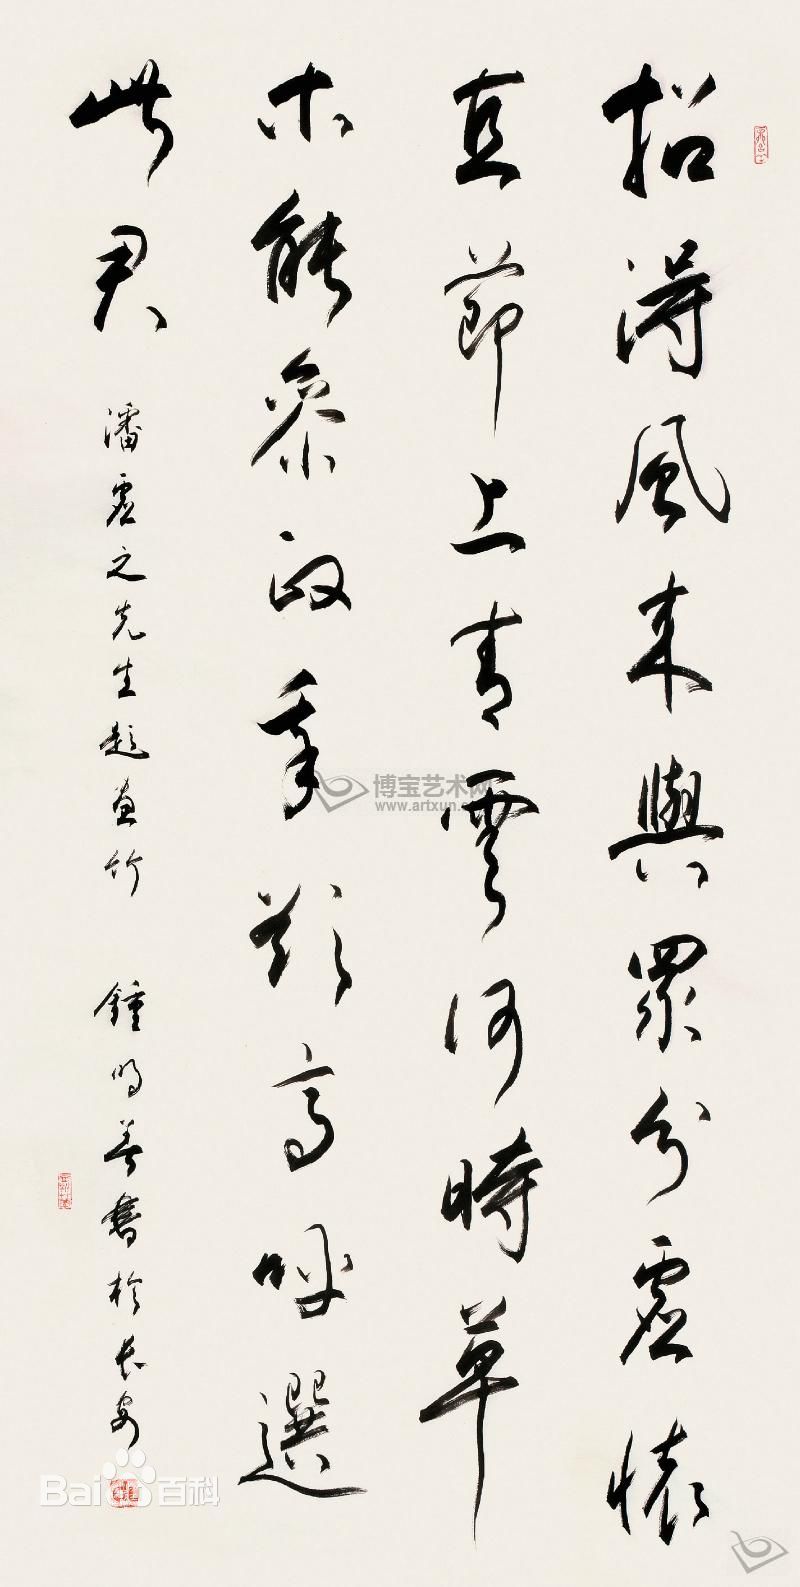 招得風来與眾分虛懷
直節上青雲何時草
木能參政舉欵高呼選
此君
潘虛之先生題画竹
鍾明善書於長安
博宝艺术网
www.artxun.
Bai 百科